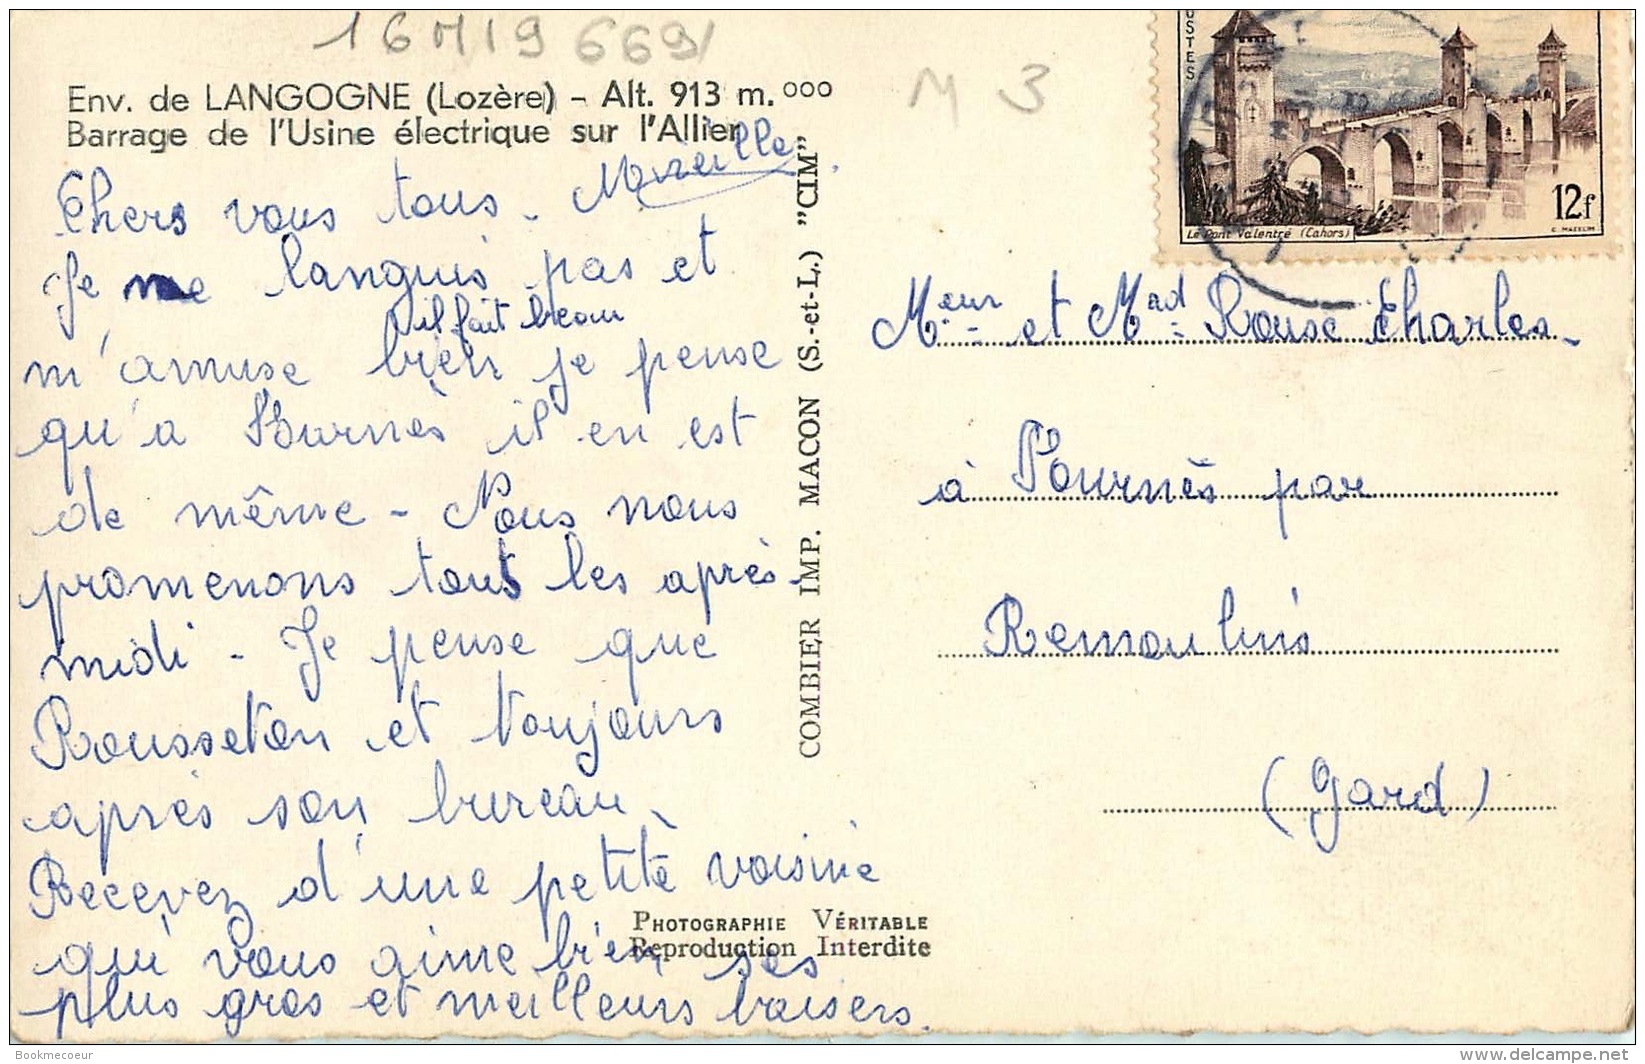 16M19 6691
M 3
Env. de LANGOGNE (Lozère) - Alt. 913 m. ooo
Barrage de l'Usine électrique sur l'Allier
Mireille
Chers vous tous.
Je me languis pas et
il fait beau
m'amuse bien je pense
qu'a Fournès il en est
de même - Nous nous
promenons tous les après-
midi - Je pense que
Rousseton et toujours
après son bureau.
Recevez d'une petite voisine
qui vous aime bien ses
plus gros et meilleurs baisers.
COMBIER IMP. MACON (S.-et-L.) "CIM"
PHOTOGRAPHIE VÉRITABLE
Reproduction Interdite
OSTES
Le Pont Valentré (Cahors)
12f
C. MAZELIN
Meur et Mad Rouse Charles
à Fournès par
Remoulins
(Gard)
Bookmecoeur
delcampe.net